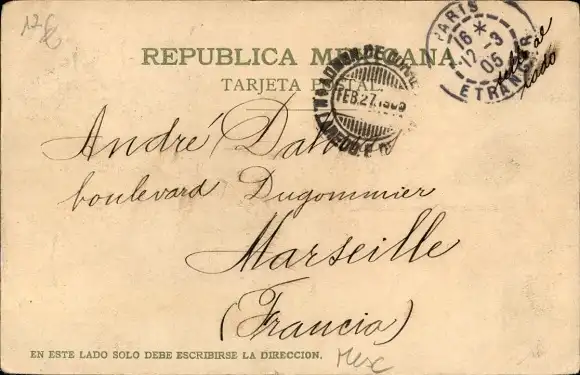 12
REPUBLICA MEXICANA.
TARJETA POSTAL.
PARIS
16 *
12 -3
05
ETRANGER
al
lado
FEB.27.1905
André
boulevard Dugommier
Marseille
(Francia)
EN ESTE LADO SOLO DEBE ESCRIBIRSE LA DIRECCION.
Mex